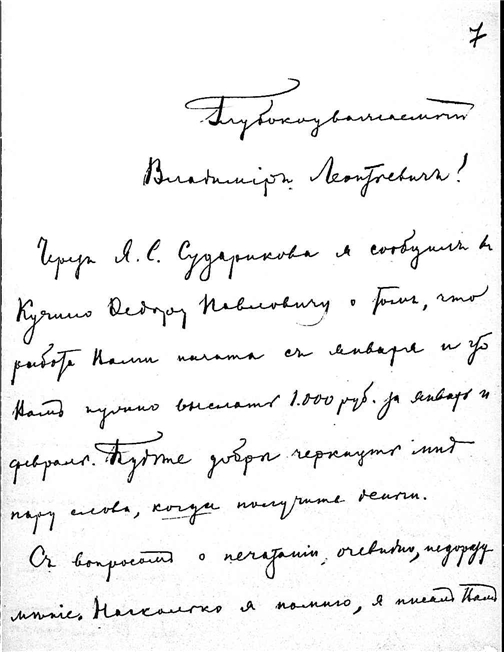 7
Глубокоуважаемый
Владиміръ Леонтьевичъ!
Черезъ Я. С. Сударикова я сообщилъ въ
Кучино Ѳедору Павловичу о томъ, что
работа Вами начата съ января и что
Вамъ нужно выслать 1.000 руб. за январь и
февраль. Будьте добры черкнуть мнѣ
пару словъ, когда получите деньги.
Съ вопросомъ о печатаніи, очевидно, недоразу
мѣніе. Насколько я помню, я писалъ Вамъ